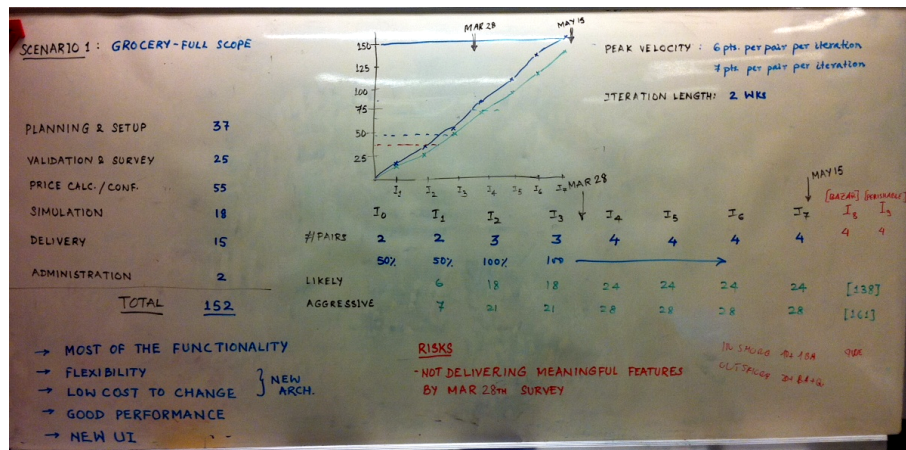 SCENARIO 1: GROCERY-FULL SCOPE
PLANNING & SETUP 37
VALIDATION & SURVEY 25
PRICE CALC./CONF. 55
SIMULATION 18
DELIVERY 15
ADMINISTRATION 2
TOTAL 152
→ MOST OF THE FUNCTIONALITY
→ FLEXIBILITY
→ LOW COST TO CHANGE } NEW ARCH.
→ GOOD PERFORMANCE
→ NEW UI
MAR 28 MAY 15
150
125
100
75
50
25
I1 I2 I3 I4 I5 I6 I7
PEAK VELOCITY : 6 pts. per pair per iteration
7 pts. per pair per iteration
ITERATION LENGTH: 2 WKS
MAR 28 MAY 15
[BAZAR] [PERISHABLE]
I0 I1 I2 I3 I4 I5 I6 I7 I8 I9
#/PAIRS 2 2 3 3 4 4 4 4 4 4
50% 50% 100% 100
LIKELY 6 18 18 24 24 24 24 [138]
AGGRESSIVE 7 21 21 28 28 28 28 [161]
RISKS
-NOT DELIVERING MEANINGFUL FEATURES
BY MAR 28TH SURVEY